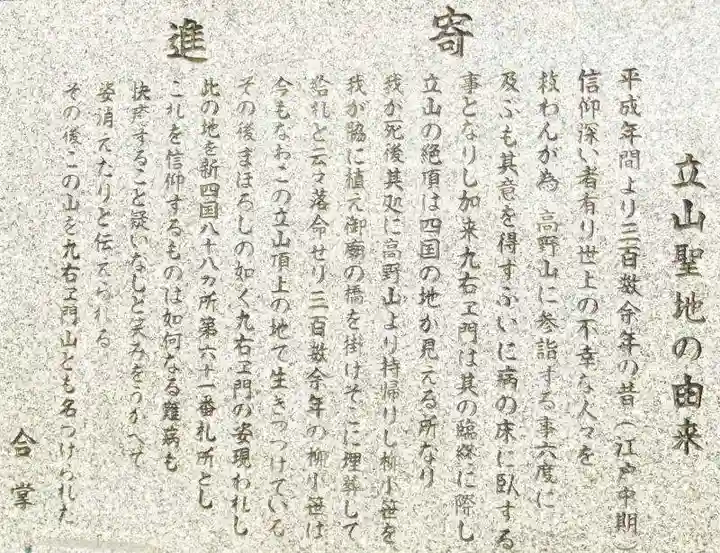 寄進
立山聖地の由来
平成年間より三百数余年の昔(江戸中期
信仰深い者有り世上の不幸な人々を
救わんが為 高野山に参詣する事六度に
及ぶも其意を得すふいに病の床に臥する
事となりし加来九右エ門は其の臨終に際し
立山の絶頂は四国の地か見える所なり
我か死後其処に高野山より持帰りし柳小笹を
我が脇に植え御廟の橋を掛けそこに埋葬して
給れと云々落命せり三百数余年の柳小笹は
今もなおこの立山頂上の地て生きつつけている
その後まほろしの如く九右ヱ門の姿現われし
此の地を新四国八十八ヵ所第六十一番札所とし
これを信仰するものは如何なる難病も
快癒すること疑いなしと笑みをうかへて
姿消えたりと伝えられる
その後この山を九右ヱ門山とも名つけられた
合掌